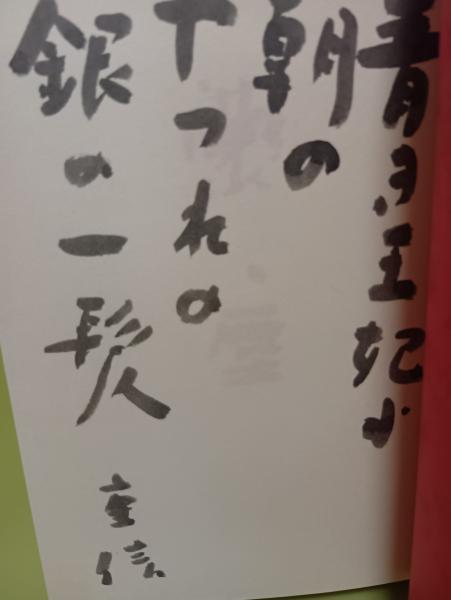 青き王妃か
朝の
つれの
銀の一髪
重信